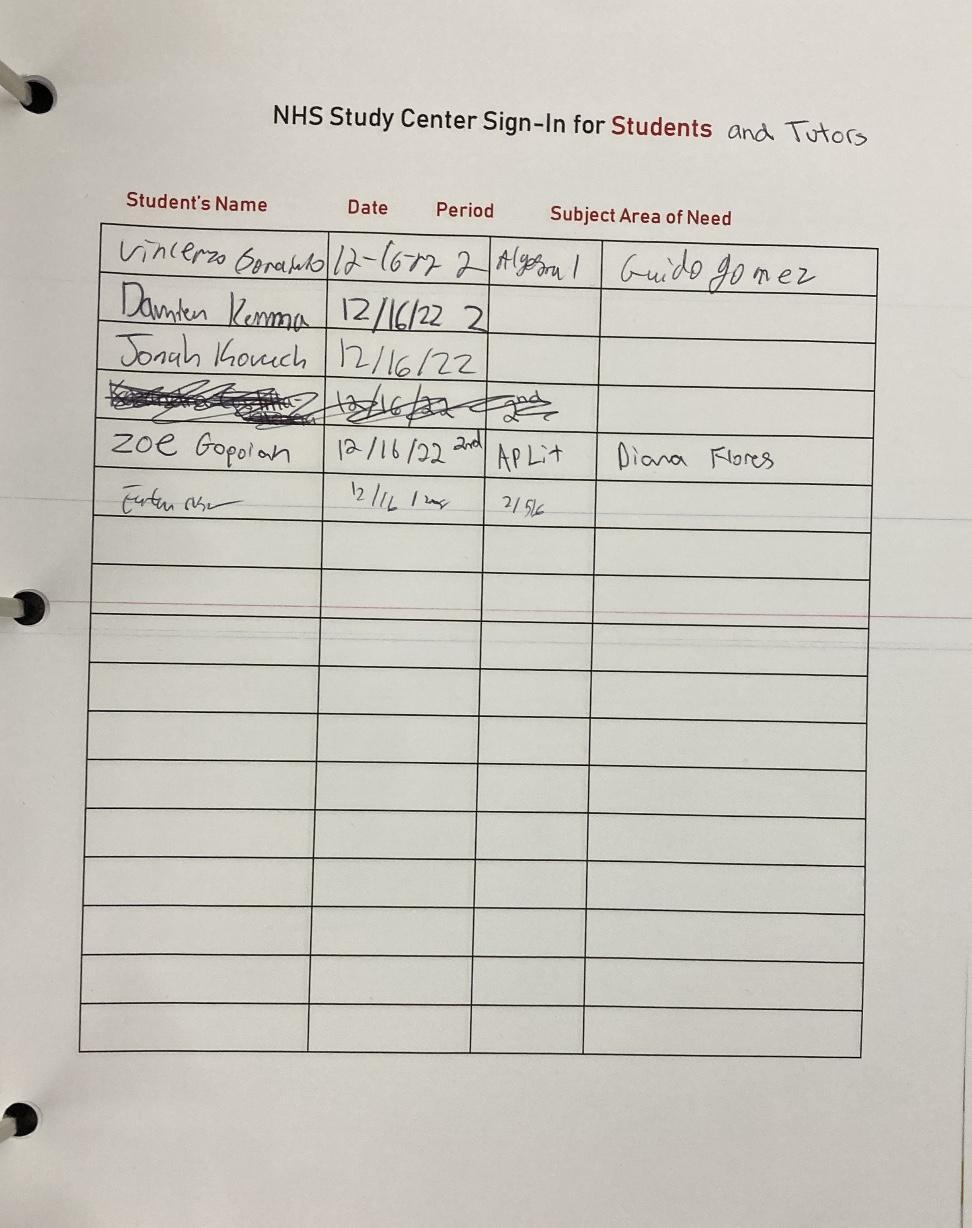 NHS Study Center Sign-In for Students and Tutors
Student's Name Date Period Subject Area of Need
Vincenzo 12-16-22 2 Algebra 1 Guido gomez
Damien Kemma 12/16/22 2
Jonah 12/16/22
12/16/22 2nd
Zoe Gopoian 12/16/22 2nd AP Lit Diana Flores
12/16